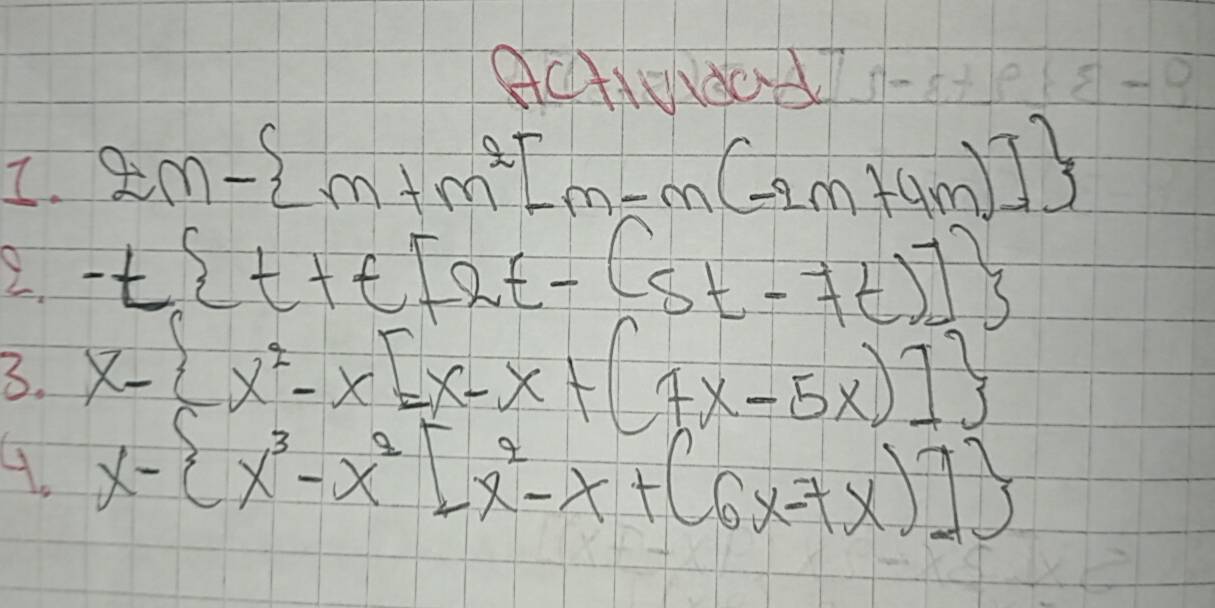 Actividad
1. 2m-{m+m²[m-m(-2m+4m)]}
2. -t{t+t[2t-(5t-7t)]}
3. x-{x²-x[x-x+(7x-5x)]}
4. x-{x³-x²[x²-x+(6x-7x)]}